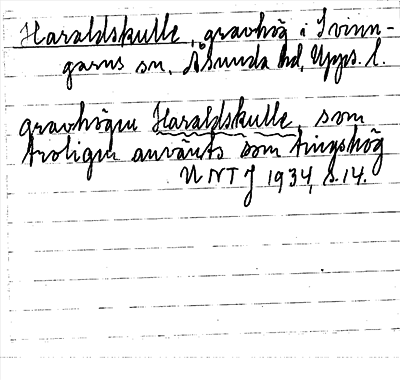 Haraldskulle, gravhög i Svinn-
garns sn, Åsunda hd, Upps. l.
gravhögen Haraldskulle, som
troligen använts som tingshög
UNT J 1934, s. 14.